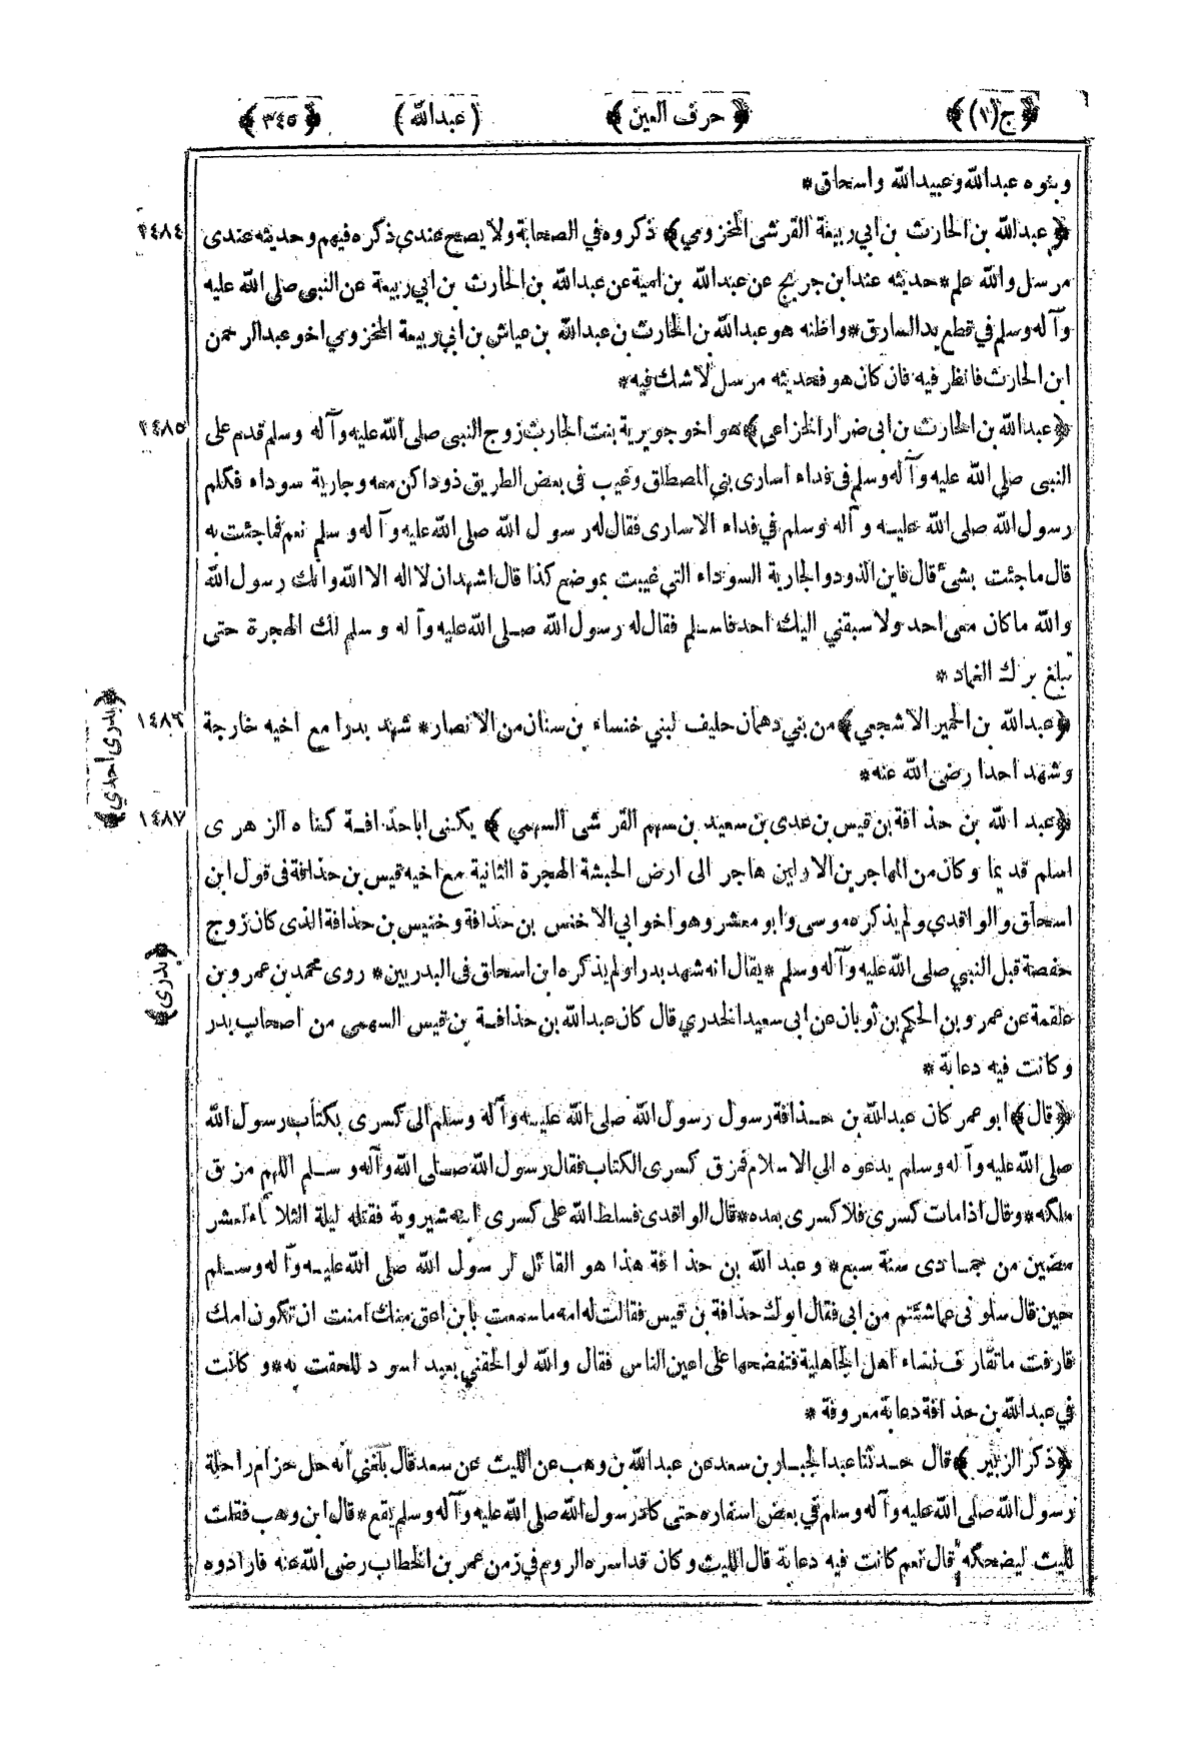 ﴿ج(١)﴾ ﴿حرف العين﴾ (عبدالله) ﴿٣٤٥﴾
وبنوه عبدالله وعبيدالله واسحاق*
١٤٨٤ ﴿عبدالله بن الحارث بن ابي ربيعة القرشى المخزومي﴾ ذكروه في الصحابة ولا يصح عندي ذكره فيهم وحديثه عندى
مرسل والله علم* حديثه عند ابن جريج عن عبدالله بن امية عن عبدالله بن الحارث بن ابي ربيعة عن النبي صلى الله عليه
وآله وسلم في قطع يد السارق* واظنه هو عبدالله بن الحارث بن عبدالله بن عياش بن ابي ربيعة المخزومي اخو عبدالرحمن
ابن الحارث فانظر فيه فان كان هو فحديثه مرسل لا شك فيه*
١٤٨٥ ﴿عبدالله بن الحارث بن ابى ضرار الخزاعي﴾ هو اخو جويرية بنت الحارث زوج النبى صلى الله عليه وآله وسلم قدم على
النبى صلى الله عليه وآله وسلم فى فداء اسارى بني المصطلق وغيب فى بعض الطريق ذودا كن معه وجارية سوداء فكلم
رسول الله صلى الله عليه وآله وسلم في فداء الاسارى فقال له رسول الله صلى الله عليه وآله وسلم نعم فما جئت به
قال ما جئت بشئ قال فاين الذود والجارية السوداء التي غيبت بموضع كذا قال اشهد ان لا اله الا الله وانك رسول الله
والله ما كان معى احد ولا سبقني اليك احد فاسلم فقال له رسول الله صلى الله عليه وآله وسلم لك الهجرة حتى
تبلغ برك الغماد*
١٤٨٦ ﴿عبدالله بن الحمير الاشجعي﴾ من بني دهمان حليف لبني خنساء بن سنان من الانصار* شهد بدرا مع اخيه خارجة
﴿بدرى احدي﴾
وشهد احدا رضى الله عنه*
١٤٨٧ ﴿عبد الله بن حذافة بن قيس بن عدى بن سعيد بن سهم القرشى السهمي﴾ يكنى ابا حذافة كناه الزهرى
اسلم قديما وكان من المهاجرين الاولين هاجر الى ارض الحبشة الهجرة الثانية مع اخيه قيس بن حذافة فى قول ابن
اسحاق والواقدي ولم يذكره موسى وابو معشر وهو اخو ابي الاخنس بن حذافة وخنيس بن حذافة الذى كان زوج
حفصة قبل النبي صلى الله عليه وآله وسلم* يقال انه شهد بدرا ولم يذكره ابن اسحاق فى البدريين* روى محمد بن عمرو بن
﴿بدرى﴾
علقمة عن عمرو بن الحكم بن ثوبان عن ابى سعيد الخدري قال كان عبدالله بن حذافة بن قيس السهمى من اصحاب بدر
وكانت فيه دعابة*
﴿قال﴾ ابو عمر كان عبدالله بن حذافة رسول رسول الله صلى الله عليه وآله وسلم الى كسرى بكتاب رسول الله
صلى الله عليه وآله وسلم يدعوه الى الاسلام فمزق كسرى الكتاب فقال رسول الله صلى الله وآله وسلم اللهم مزق
ملكه* وقال اذا مات كسرى فلا كسرى بعده* قال الواقدى فسلط الله على كسرى ابنه شيروية فقتله ليلة الثلاثاء لعشر
مضين من جمادى سنة سبع* وعبد الله بن حذافة هذا هو القائل لرسول الله صلى الله عليه وآله وسلم
حين قال سلونى عما شئتم من ابى فقال ابوك حذافة بن قيس فقالت له امه ما سمعت بابن اعق منك امنت ان تكون امك
قارفت ما تقارف نساء اهل الجاهلية فتفضحها على اعين الناس فقال والله لو الحقني بعبد اسود للحقت به* وكانت
في عبدالله بن حذافة دعابة معروفة*
﴿ذكر الزبير﴾ قال حدثنا عبدالجبار بن سعد عن عبدالله بن وهب عن الليث عن سعد قال بلغني أنه حل حزام راحلة
رسول الله صلى الله عليه وآله وسلم في بعض اسفاره حتى كاد رسول الله صلى الله عليه وآله وسلم يقع* قال ابن وهب فقلت
لليث ليضحكه قال نعم كانت فيه دعابة قال الليث وكان قد اسره الروم في زمن عمر بن الخطاب رضى الله عنه فارادوه